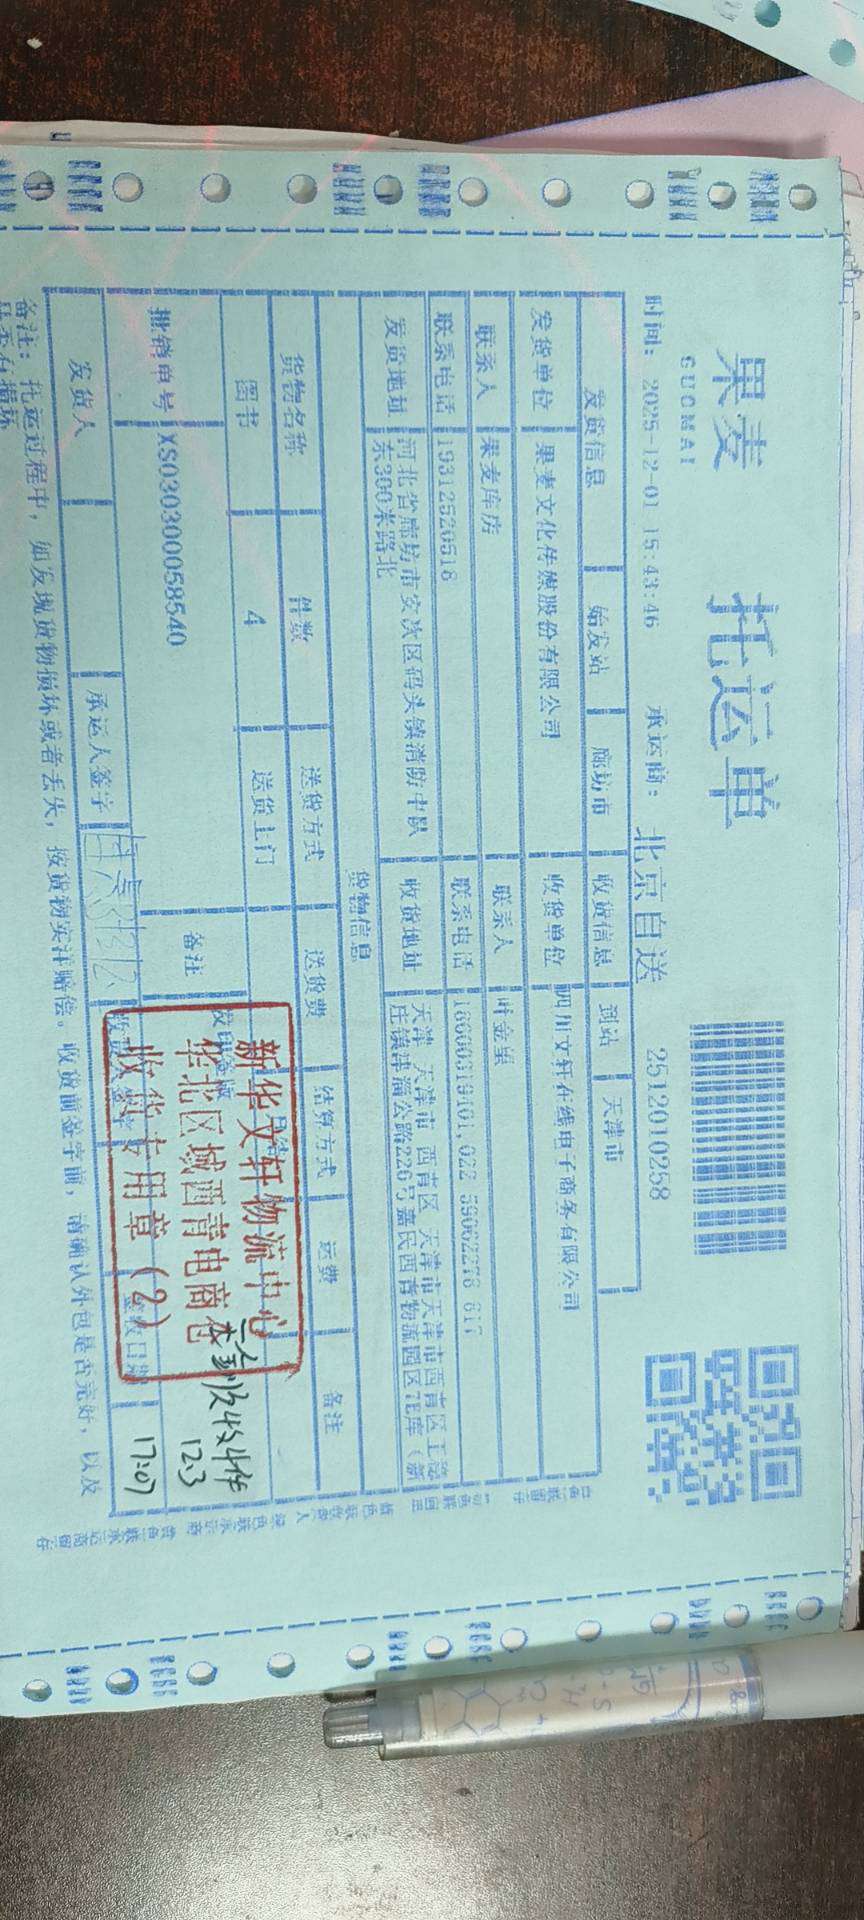 果麦
GUOMAI
托运单
时间: 2025-12-01 15:43:46 承运商: 北京自送 2512010258
发货信息 始发站 廊坊市 收货信息 到站 天津市
发货单位 果麦文化传媒股份有限公司 收货单位 四川文轩在线电子商务有限公司
联系人 果麦库房 联系人
联系电话 19312520518 联系电话
发货地址 河北省廊坊市安次区码头镇消防中队
东300米路北
收货地址 天津 天津市 西青区 天津市天津市西青区王
庄镇津涌公路226号嘉民西青物流园区
货物信息
货物名称 件数 送货方式 送货费 结算方式 运费 备注
图书 4 送货上门
批销单号 XS030300058540 备注
发货人 承运人签字 签收日期
新华文轩物流中心
华北区域西青电商仓
收货专用章(2)
收4件
12.3
17:07
备注: 托运过程中, 如发现货物损坏或者丢失, 按货物实洋赔偿。收货前签字前, 请确认外包是否完好, 以及